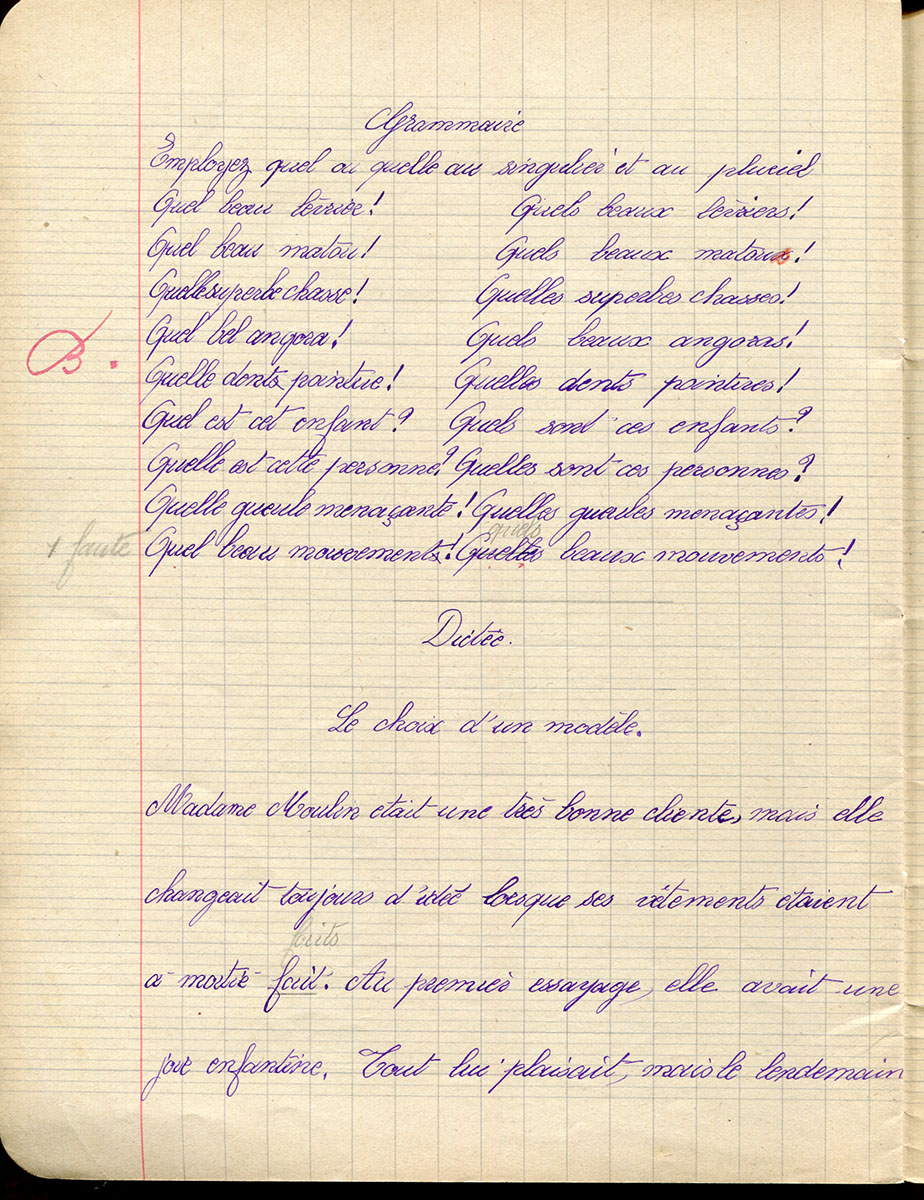 Grammaire
Employez quel ou quelle au singulier et au pluriel
Quel beau terrier! Quels beaux terriers!
Quel beau matou! Quels beaux matous!
Quelle superbe chasse! Quelles superbes chasses!
Quel bel angora! Quels beaux angoras!
B.
Quelle dents pointue! Quelles dents pointues!
Quel est cet enfant? Quels sont ces enfants?
Quelle est cette personne? Quelles sont ces personnes?
Quelle gueule menaçante! Quelles gueules menaçantes!
quels
1 faute Quel beau mouvements! Quelles beaux mouvements!
Dictée.
Le choix d'un modèle.
Madame Moulin était une très bonne cliente, mais elle
changeait toujours d'idée lorsque ses vêtements étaient
faits
a moitié fait. Au premier essayage, elle avait une
joie enfantine. Tout lui plaisait, mais le lendemain